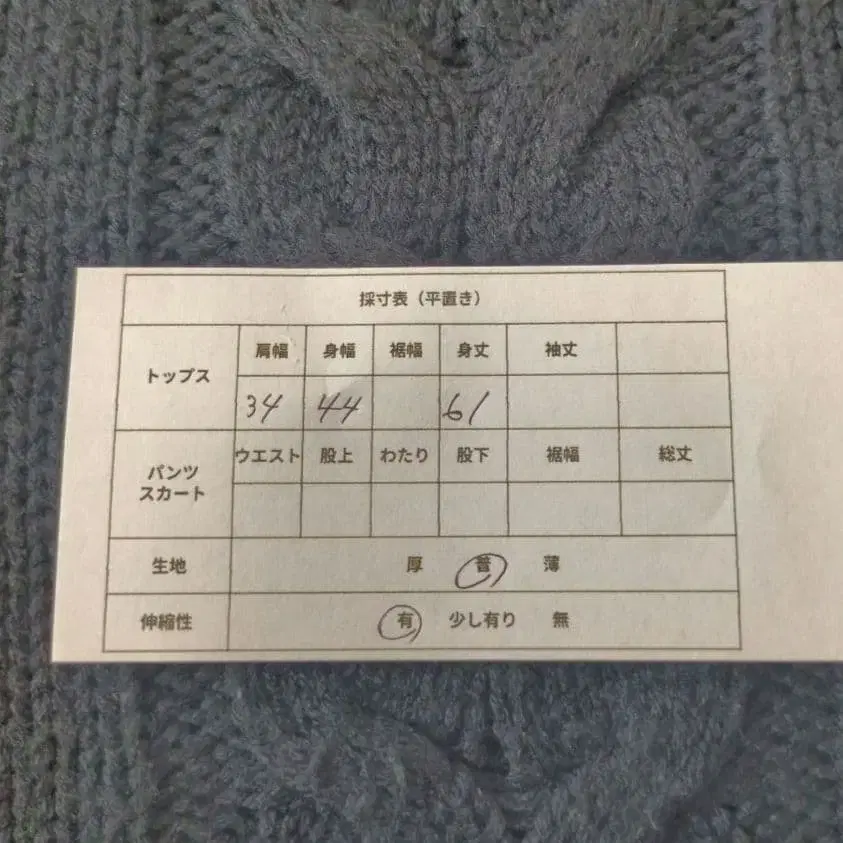 採寸表（平置き）
トップス 肩幅 身幅 裾幅 身丈 袖丈
34 44 61
パンツ スカート ウエスト 股上 わたり 股下 裾幅 総丈
生地 厚 普 薄
伸縮性 有 少し有り 無